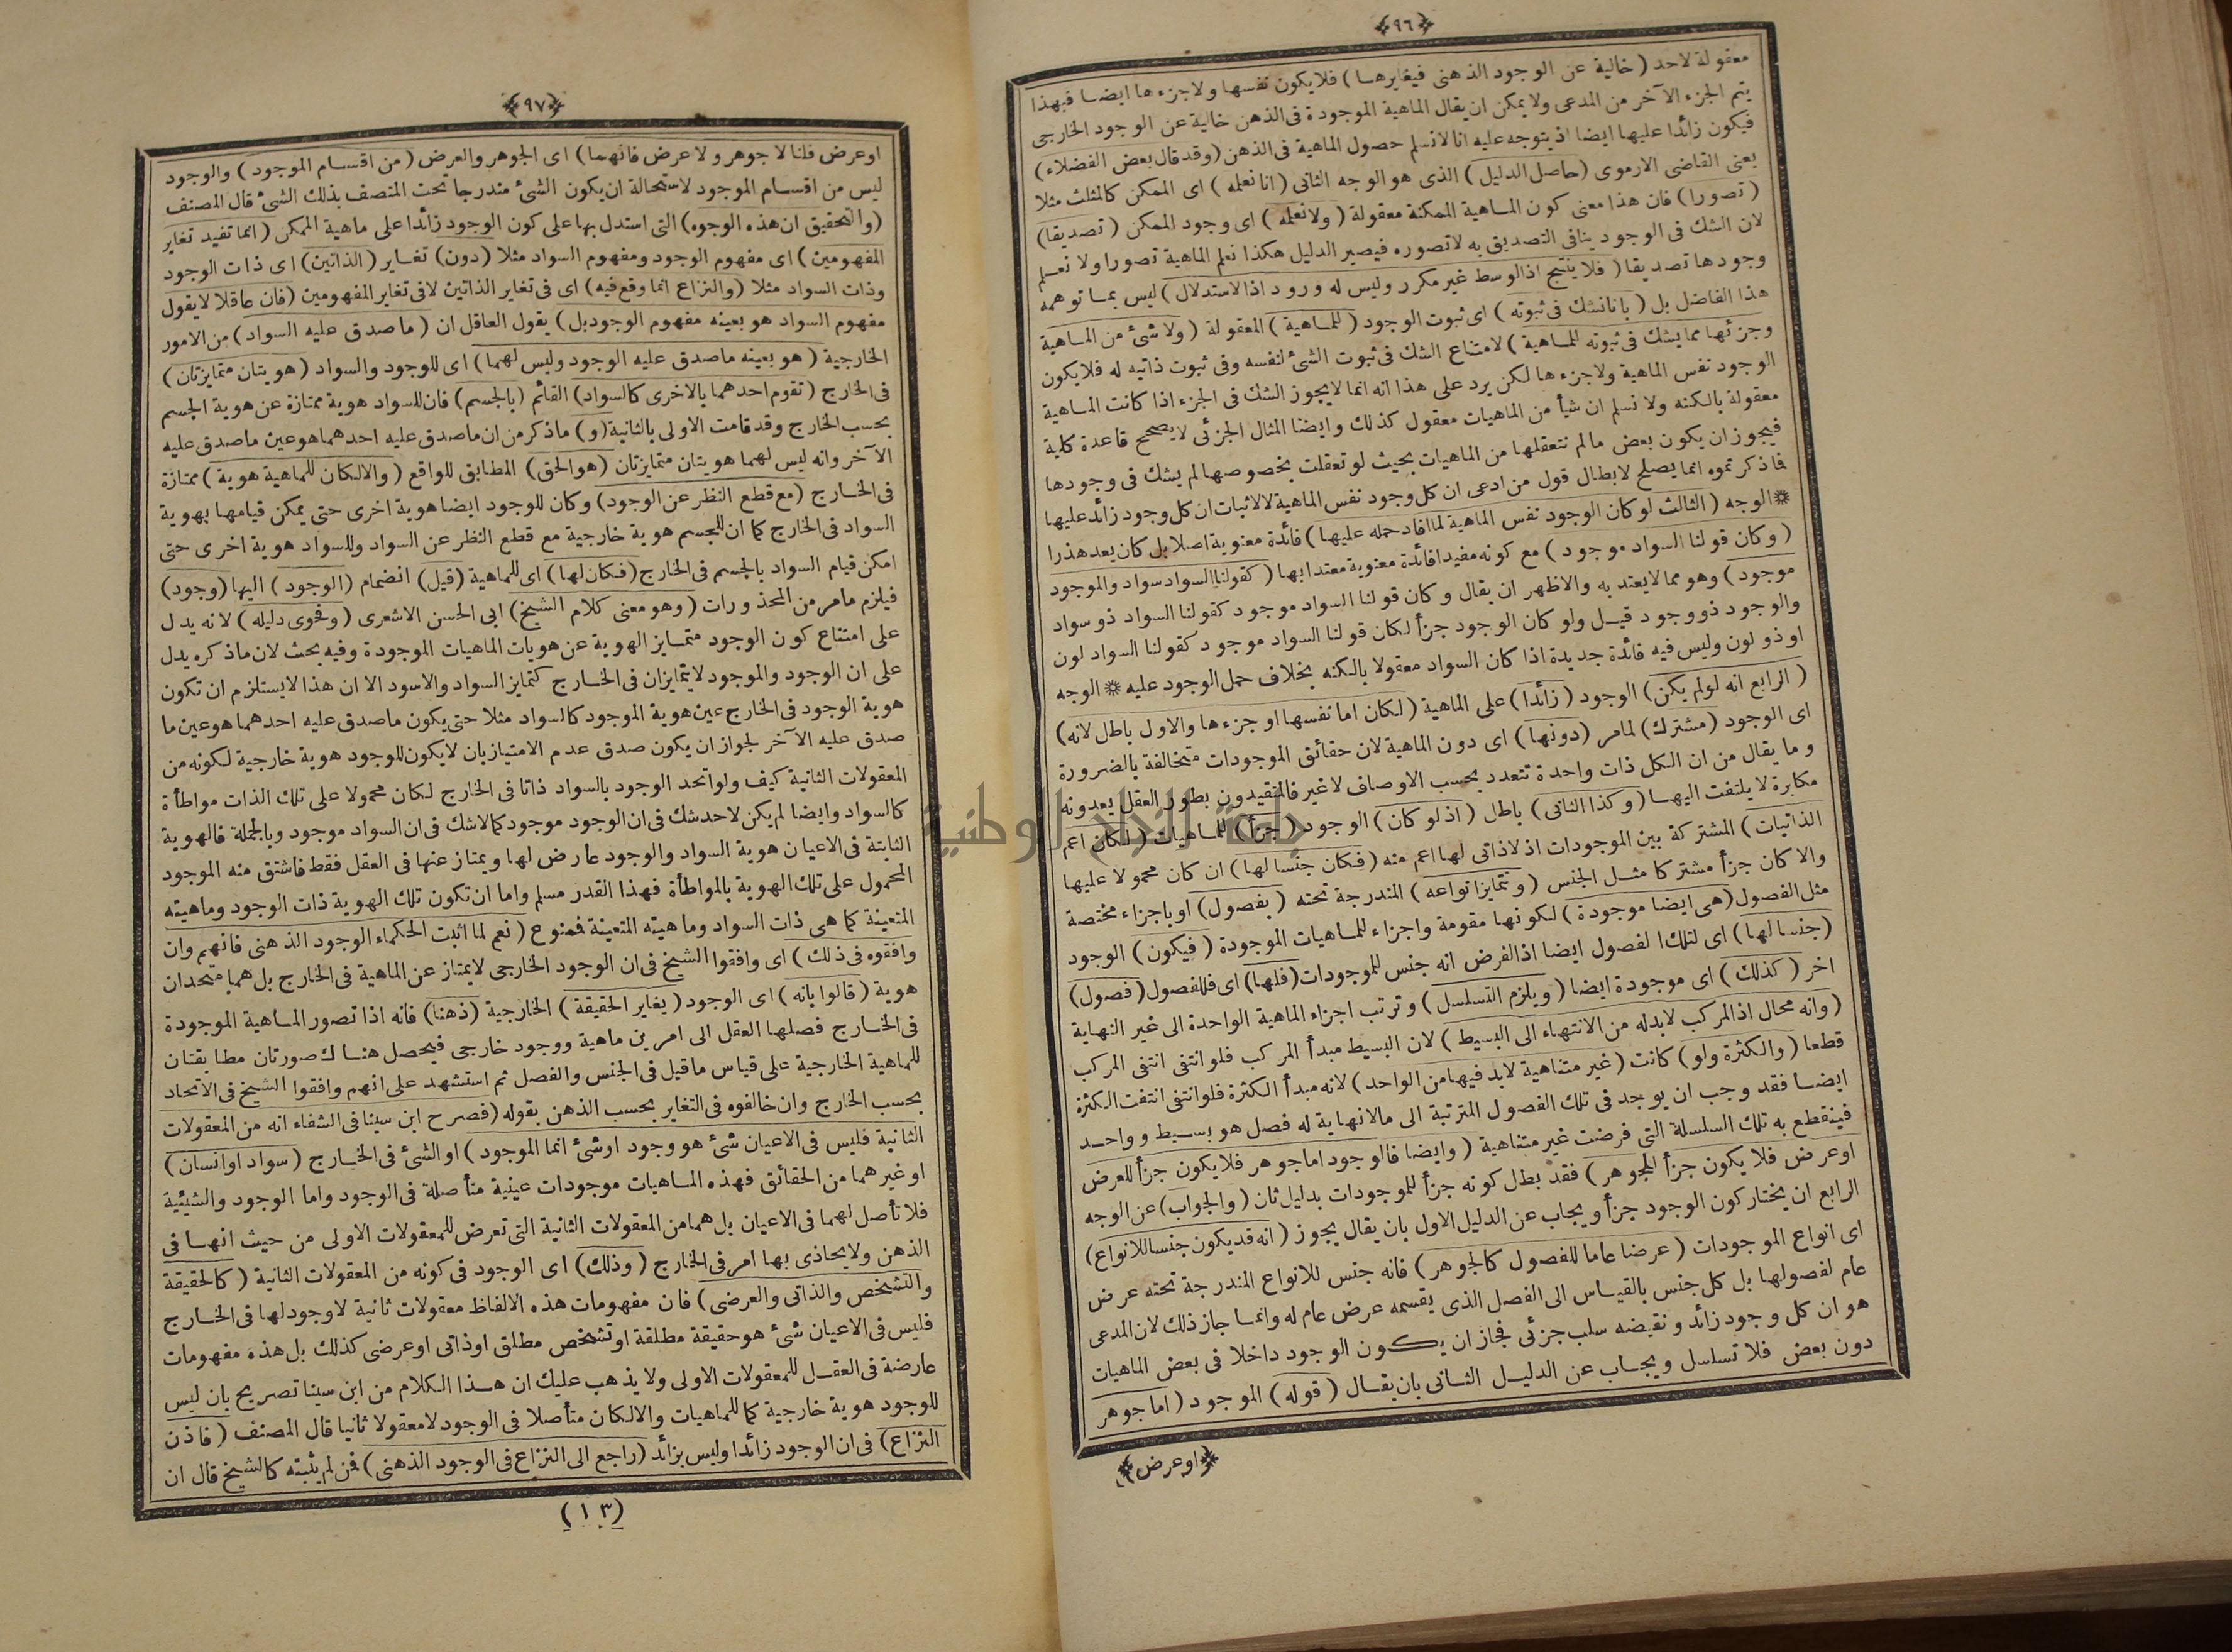 ﴿٩٦﴾
معقولة لاحد (خالية عن الوجود الذهنى فيغايرها) فلا يكون نفسها ولا جزءها ايضا فبهذا
يتم الجزء الآخر من المدعى ولا يمكن ان يقال الماهية الموجودة فى الذهن خالية عن الوجود الخارجى
فيكون زائدا عليها ايضا اذ يتوجه عليه انا لا نسلم حصول الماهية فى الذهن (وقد قال بعض الفضلاء)
يعنى القاضى الارموى (حاصل الدليل) الذى هو الوجه الثانى (انا نعلمه) اى الممكن كالمثلث مثلا
(تصورا) فان هذا معنى كون الماهية الممكنة معقولة (ولا نعلمه) اى وجود الممكن (تصديقا)
لان الشك فى الوجود ينافى التصديق به لا تصوره فيصير الدليل هكذا نعلم الماهية تصورا ولا نعلم
وجودها تصديقا (فلا ينتج اذ الوسط غير مكرر وليس له ورود اذ الاستدلال) ليس بما توهمه
هذا الفاضل بل (بانا نشك فى ثبوته) اى ثبوت الوجود (للماهية) المعقولة (ولا شئ من الماهية
وجزئها مما يشك فى ثبوته للماهية) لامتناع الشك فى ثبوت الشئ لنفسه وفى ثبوت ذاتيه له فلا يكون
الوجود نفس الماهية ولا جزءها لكن يرد على هذا انه انما لا يجوز الشك فى الجزء اذا كانت الماهية
معقولة بالكنه ولا نسلم ان شيأ من الماهيات معقول كذلك وايضا المثال الجزئى لا يصحح قاعدة كلية
فيجوز ان يكون بعض ما لم نتعقلها من الماهيات بحيث لو تعقلت بخصوصها لم يشك فى وجودها
فاذكرتموه انما يصلح لابطال قول من ادعى ان كل وجود نفس الماهية لا لاثبات ان كل وجود زائد عليها
* الوجه (الثالث لو كان الوجود نفس الماهية لما افاد حمله عليها) فائدة معنوية اصلا بل كان يعد هذرا
(وكان قولنا السواد موجود) مع كونه مفيدا فائدة معنوية معتدا بها (كقولنا السواد سواد والموجود
موجود) وهو مما لا يعتد به والاظهر ان يقال وكان قولنا السواد موجود كقولنا السواد ذو سواد
والوجود ذو وجود قيل ولو كان الوجود جزأ لكان قولنا السواد موجود كقولنا السواد لون
او ذو لون وليس فيه فائدة جديدة اذا كان السواد معقولا بالكنه بخلاف حمل الوجود عليه * الوجه
(الرابع انه لو لم يكن) الوجود (زائدا) على الماهية (لكان اما نفسها او جزءها والاول باطل لانه)
اى الوجود (مشترك) لما مر (دونها) اى دون الماهية لان حقائق الموجودات متخالفة بالضرورة
وما يقال من ان الكل ذات واحدة تتعدد بحسب الاوصاف لا غير فالمتقيدون بطور العقل يعدونه
مكابرة لا يلتفت اليها (وكذا الثانى) باطل (اذ لو كان) الوجود (جزأ) للماهيات (لكان اعم
الذاتيات) المشتركة بين الموجودات اذ لا ذاتى لها اعم منه (فكان جنسا لها) ان كان محمولا عليها
والا كان جزأ مشتركا مثل الجنس (وتتمايز انواعه) المندرجة تحته (بفصول) او باجزاء مختصة
مثل الفصول (هى ايضا موجودة) لكونها مقومة واجزاء للماهيات الموجودة (فيكون) الوجود
(جنسا لها) اى لتلك الفصول ايضا اذ الفرض انه جنس للموجودات (فلها) اى فللفصول (فصول)
اخر (كذلك) اى موجودة ايضا (ويلزم التسلسل) وترتب اجزاء الماهية الواحدة الى غير النهاية
(وانه محال اذ المركب لا بد له من الانتهاء الى البسيط) لان البسيط مبدأ المركب فلو انتفى انتفى المركب
قطعا (والكثرة ولو) كانت (غير متناهية لا بد فيها من الواحد) لانه مبدأ الكثرة فلو انتفى انتفت الكثرة
ايضا فقد وجب ان يوجد فى تلك الفصول المترتبة الى ما لا نهاية له فصل هو بسيط وواحد
فينقطع به تلك السلسلة التى فرضت غير متناهية (وايضا فالوجود اما جوهر فلا يكون جزأ للعرض
او عرض فلا يكون جزأ للجوهر) فقد بطل كونه جزأ للموجودات بدليل ثان (والجواب) عن الوجه
الرابع ان يختار كون الوجود جزأ ويجاب عن الدليل الاول بان يقال يجوز (انه قد يكون جنسا للانواع)
اى انواع الموجودات (عرضا عاما للفصول كالجوهر) فانه جنس للانواع المندرجة تحته عرض
عام لفصولها بل كل جنس بالقياس الى الفصل الذى يقسمه عرض عام له وانما جاز ذلك لان المدعى
هو ان كل وجود زائد ونقيضه سلب جزئى فجاز ان يكون الوجود داخلا فى بعض الماهيات
دون بعض فلا تسلسل ويجاب عن الدليل الثانى بان يقال (قوله) الموجود (اما جوهر
﴿او عرض﴾
﴿٩٧﴾
او عرض قلنا لا جوهر ولا عرض فانهما) اى الجوهر والعرض (من اقسام الموجود) والوجود
ليس من اقسام الموجود لاستحالة ان يكون الشئ مندرجا تحت المتصف بذلك الشئ قال المصنف
(والتحقيق ان هذه الوجوه) التى استدل بها على كون الوجود زائدا على ماهية الممكن (انما تفيد تغاير
المفهومين) اى مفهوم الوجود ومفهوم السواد مثلا (دون) تغاير (الذاتين) اى ذات الوجود
وذات السواد مثلا (والنزاع انما وقع فيه) اى فى تغاير الذاتين لا فى تغاير المفهومين (فان عاقلا لا يقول
مفهوم السواد هو بعينه مفهوم الوجود بل) يقول العاقل ان (ما صدق عليه السواد) من الامور
الخارجية (هو بعينه ما صدق عليه الوجود وليس لهما) اى للوجود والسواد (هويتان متمايزتان)
فى الخارج (تقوم احدهما بالاخرى كالسواد) القائم (بالجسم) فان للسواد هوية ممتازة عن هوية الجسم
بحسب الخارج وقد قامت الاولى بالثانية (و) ما ذكر من ان ما صدق عليه احدهما هو عين ما صدق عليه
الآخر وانه ليس لهما هويتان متمايزتان (هو الحق) المطابق للواقع (والا لكان للماهية هوية) ممتازة
فى الخارج (مع قطع النظر عن الوجود) وكان للوجود ايضا هوية اخرى حتى يمكن قيامها بهوية
السواد فى الخارج كما ان للجسم هوية خارجية مع قطع النظر عن السواد وللسواد هوية اخرى حتى
امكن قيام السواد بالجسم فى الخارج (فكان لها) اى للماهية (قبل) انضمام (الوجود) اليها (وجود)
فيلزم ما مر من المحذورات (وهو معنى كلام الشيخ) ابى الحسن الاشعرى (وفحوى دليله) لانه يدل
على امتناع كون الوجود متمايز الهوية عن هويات الماهيات الموجودة وفيه بحث لان ما ذكره يدل
على ان الوجود والموجود لا يتمايزان فى الخارج كتمايز السواد والاسود الا ان هذا لا يستلزم ان تكون
هوية الوجود فى الخارج عين هوية الموجود كالسواد مثلا حتى يكون ما صدق عليه احدهما هو عين ما
صدق عليه الآخر لجواز ان يكون صدق عدم الامتياز بان لا يكون للوجود هوية خارجية لكونه من
المعقولات الثانية كيف ولو اتحد الوجود بالسواد ذاتا فى الخارج لكان محمولا على تلك الذات مواطأة
كالسواد وايضا لم يكن لاحد شك فى ان الوجود موجود كما لا شك فى ان السواد موجود وبالجملة فالهوية
الثابتة فى الاعيان هوية السواد والوجود عارض لها ويمتاز عنها فى العقل فقط فاشتق منه الموجود
المحمول على تلك الهوية بالمواطأة فهذا القدر مسلم واما ان تكون تلك الهوية ذات الوجود وماهيته
المتعينة كما هى ذات السواد وماهيته المتعينة فمنوع (نعم لما اثبت الحكماء الوجود الذهنى فانهم وان
وافقوه فى ذلك) اى وافقوا الشيخ فى ان الوجود الخارجى لا يمتاز عن الماهية فى الخارج بل هما متحدان
هوية (قالوا بانه) اى الوجود (يغاير الحقيقة) الخارجية (ذهنا) فانه اذا تصور الماهية الموجودة
فى الخارج فصلها العقل الى امرين ماهية ووجود خارجى فيحصل هناك صورتان مطابقتان
للماهية الخارجية على قياس ما قيل فى الجنس والفصل ثم استشهد على انهم وافقوا الشيخ فى الاتحاد
بحسب الخارج وان خالفوه فى التغاير بحسب الذهن بقوله (فصرح ابن سينا فى الشفاء انه من المعقولات
الثانية فليس فى الاعيان شئ هو وجود او شئ انما الموجود) او الشئ فى الخارج (سواد او انسان)
او غيرهما من الحقائق فهذه الماهيات موجودات عينية متأصلة فى الوجود واما الوجود والشيئية
فلا تأصل لهما فى الاعيان بل هما من المعقولات الثانية التى تعرض للمعقولات الاولى من حيث انها فى
الذهن ولا يحاذى بها امر فى الخارج (وذلك) اى الوجود فى كونه من المعقولات الثانية (كالحقيقة
والتشخص والذاتى والعرضى) فان مفهومات هذه الالفاظ معقولات ثانية لا وجود لها فى الخارج
فليس فى الاعيان شئ هو حقيقة مطلقة او تشخص مطلق او ذاتى او عرضى كذلك بل هذه مفهومات
عارضة فى العقل للمعقولات الاولى ولا يذهب عليك ان هذا الكلام من ابن سينا تصريح بان ليس
للوجود هوية خارجية كما للماهيات والا لكان متأصلا فى الوجود لا معقولا ثانيا قال المصنف (فاذن
النزاع) فى ان الوجود زائدا وليس بزائد (راجع الى النزاع فى الوجود الذهنى) فمن لم يثبته كالشيخ قال ان
(١٣)
جامعة النجاح الوطنية